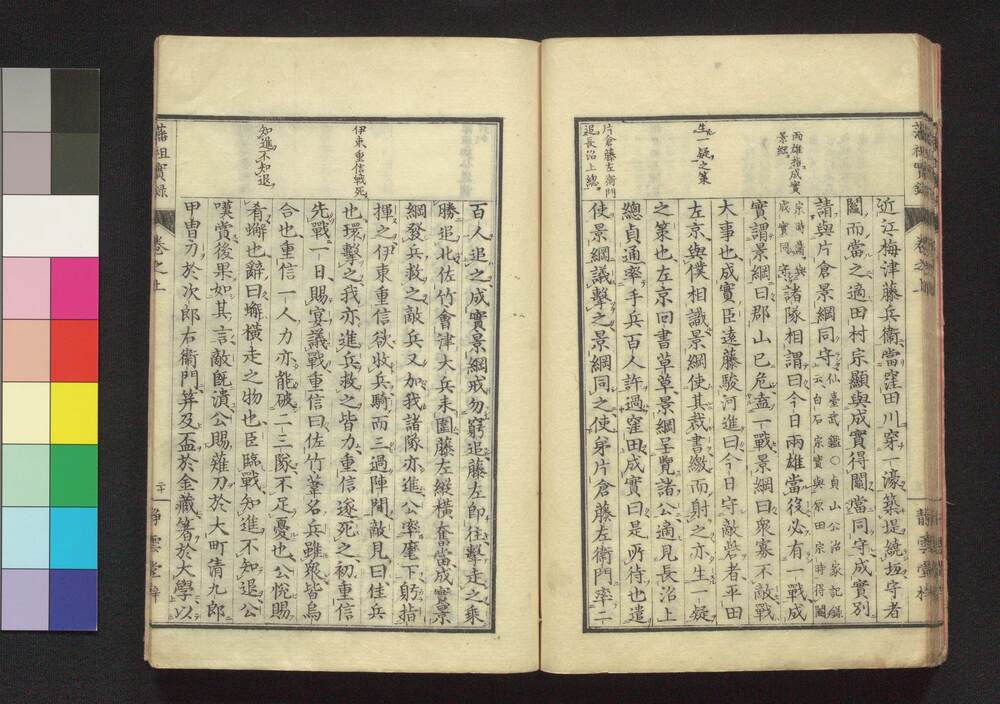 兩雄指成實
景綱
生一疑之策
片倉藤左衛門
退長沼上總
近江梅津藤兵衛當窪田川穿一濠築堤繞垣守者
鬮而當之適田村宗顯與成實得鬮當同守成實別
請與片倉景綱同守
仙臺武鑑○貞山公治家記錄
云白石宗實與原田宗時得鬮
宗時請與
成實同守
諸隊相謂曰今日兩雄當後必有一戰成
實謂景綱曰郡山已危盍一戰景綱曰衆寡不敵戰
大事也成實臣遠藤駿河進曰今日守敵砦者平田
左京與僕相識景綱使其裁書繳而射之亦生一疑
之策也左京回書草草景綱呈覽諸公適見長沼上
總貞通率手兵百人許過窪田成實曰是所待也遣
使景綱議擊之景綱同之使弟片倉藤左衛門率二
伊東重信戰死
知進不知退
百人追之成實景綱戒勿窮追藤左卽往擊走之乘
勝追北佐竹會津大兵來圍藤左縱橫奮當成實景
綱發兵救之敵兵又加我諸隊亦進公率麾下躬指
揮之伊東重信欲收兵騎而三過陣間敵見曰佳兵
也環擊之我亦進兵救之皆力重信遂死之初重信
先戰一日賜宴議戰重信曰佐竹葦名兵雖衆皆烏
合也重信一人力亦能破二三隊不足憂也公悅賜
肴蠏也辭曰蠏橫走之物也臣臨戰知進不知退公
嘆賞後果如其言敵旣潰公賜薙刀於大町淸九郎
甲冑刃於次郎右衛門箅及盃於金藏箸於大學以
藩祖實錄
卷之上
二十
靜雲堂梓